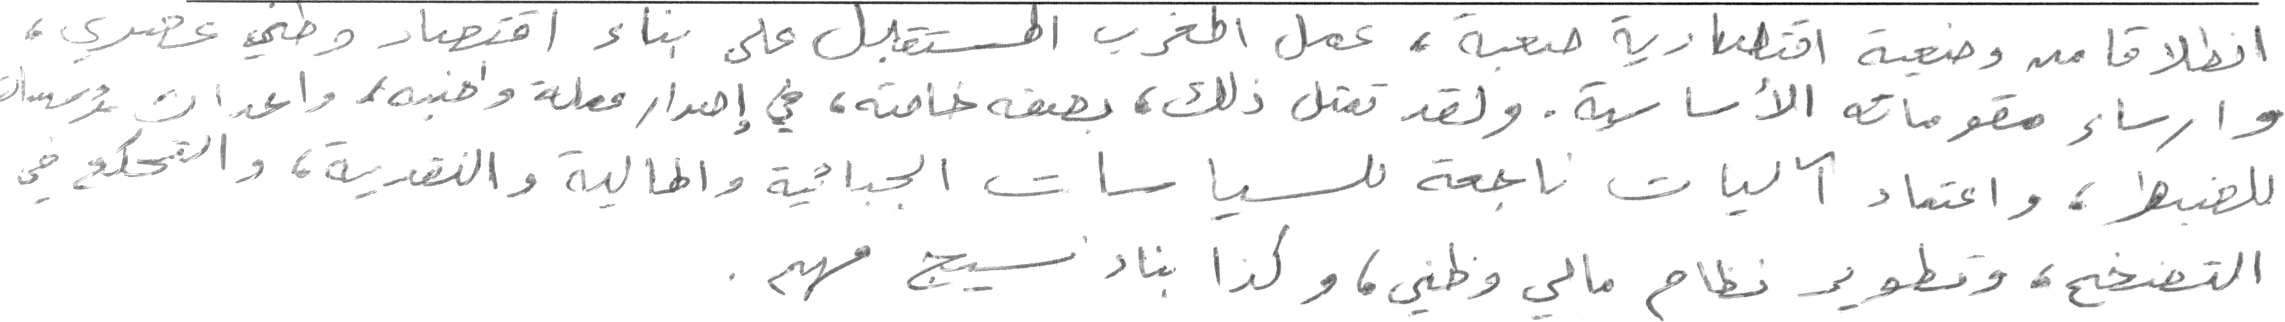 انطلاقا من وضعية اقتصادية صعبة، عمل المغرب المستقبل على بناء اقتصاد وطني عصري،
وارساء مقوماته الأساسية. ولقد تمثل ذلك، بصفه خاصته، في إصدار عملة وطنيه، واعدات مؤسسات
للضبط، واعتماد آليات ناجعة للسياسات الجبائية والمالية والنقدية، والتحكم في
التضخم، وتطوير نظام مالي وطني، وكذا بناء نسيج مهم.